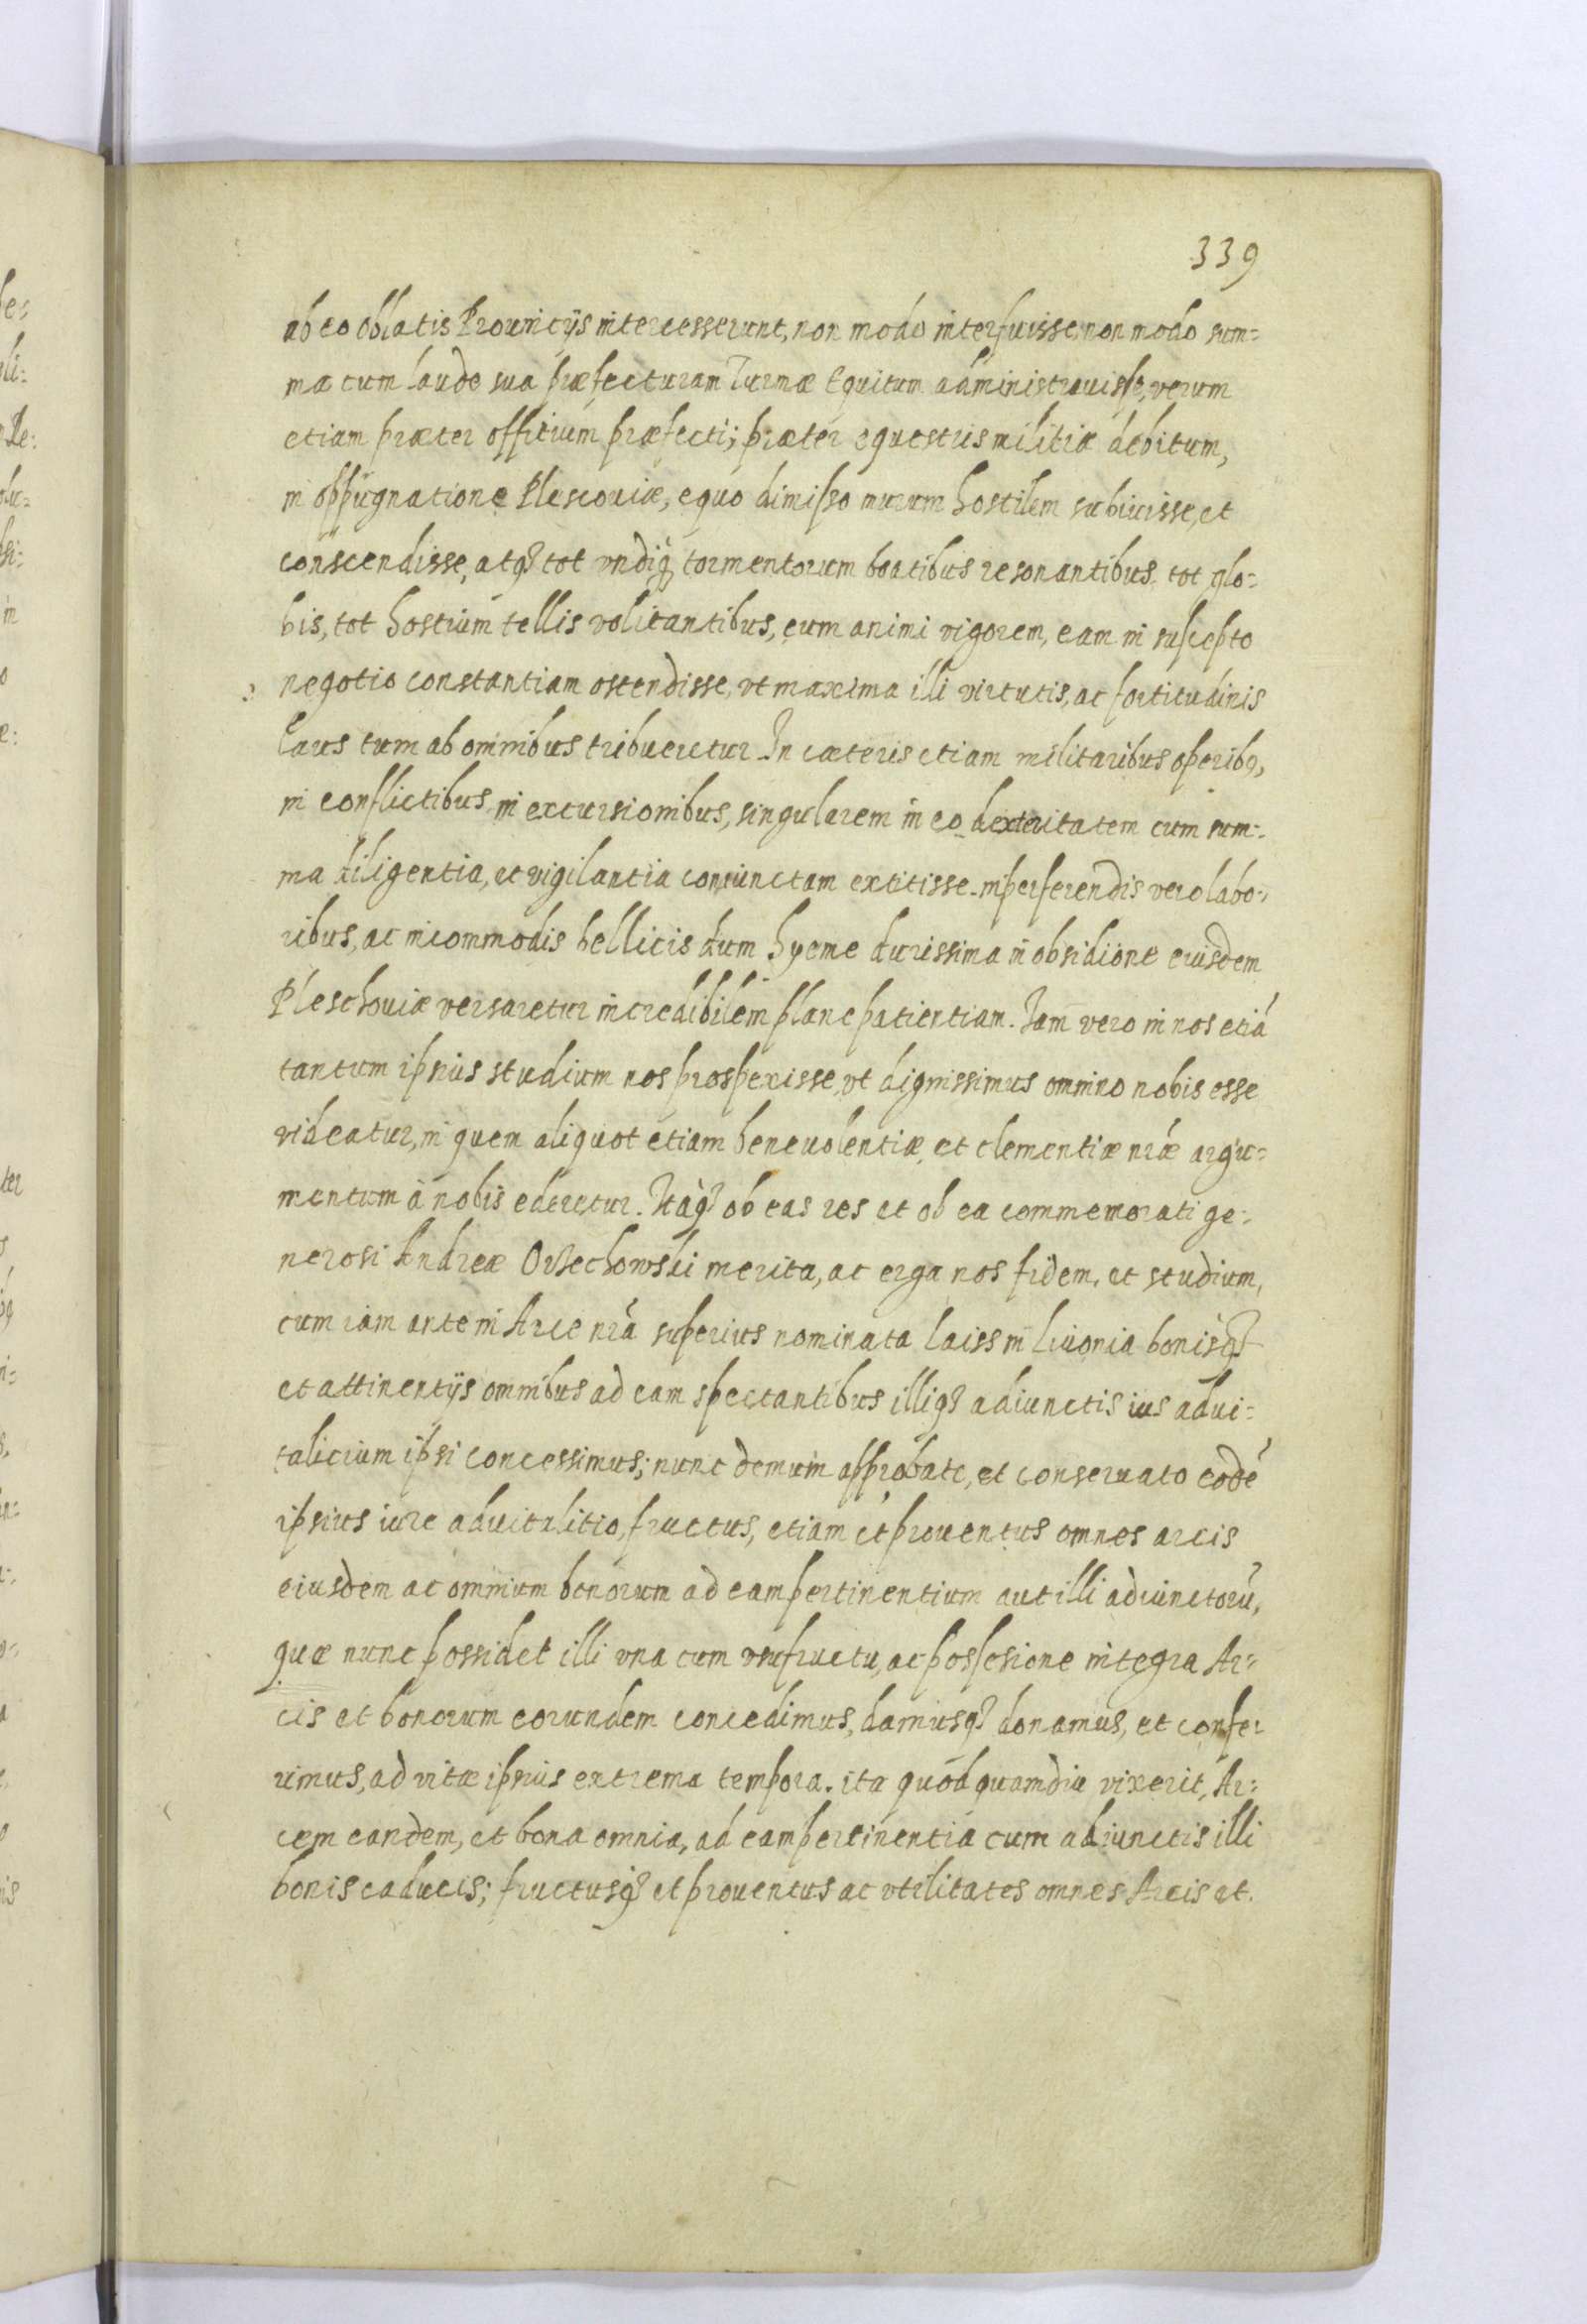 339
ab eo oblatis Prouincijs intercesserunt, non modo interfuisse, non modo sum=
ma cum laude sua præfecturam Turmæ Equitum administrauisse, verum
etiam præter offitium præfecti; præter equestris militiæ debitum,
in oppugnatione Plescouiæ, equo dimisso murum hostilem subiuisse, et
conscendisse, atq3 tot vndiq3 tormentorum boatibus resonantibus tot glo=
bis, tot hostium tellis volitantibus, eum animi vigorem, eam in suscepto
negotio constantiam ostendisse, vt maxima illi virtutis, ac fortitudinis
laus tum ab omnibus tribueretur. In cæteris etiam militaribus operib9,
in conflictibus, in excursionibus, singularem in eo dexteritatem cum sum=
ma diligentia, et vigilantia coniunctam extitisse. in perferendis vero labo=
ribus, ac incommodis bellicis dum hyeme durissima in obsidione eiusdem
Pleschouiæ versaretur incredibilem plane patientiam. Iam vero in nos etiá
tantum ipsius studium nos prospexisse, vt dignissimus omnino nobis esse
videatur, in quem aliquot etiam beneuolentiæ, et clementiæ nræ argu=
mentum à nobis ederetur. Itàq3 ob eas res et ob ea commemorati ge=
nerosi Andreæ Orzechowski merita, ac erga nos fidem, et studium,
cum iam ante in Arce nrá superius nominata Laiss in Liuonia bonisq3
et attinentijs omnibus ad eam spectantibus illiq3 adiunctis ius adui=
talicium ipsi concessimus; nunc demum approbate, et conseruato eodé
ipsius iure aduitalitio, fructus, etiam et prouentus omnes arcis
eiusdem ac omnium bonorum ad eam pertinentium aut illi adiunctorú,
quæ nunc possidet illi vna cum vsufructu, ac possesione integra Ar=
cis et bonorum eorundem concedimus, damusq3 donamus, et confe=
rimus, ad vitæ ipsius extrema tempora. ita quód quamdiu vixerit, Ar=
cem eandem, et bona omnia, ad eam pertinentia cum adiunctis illi
bonis caducis; fructusq3 et prouentus ac vtilitates omnes Arcis et